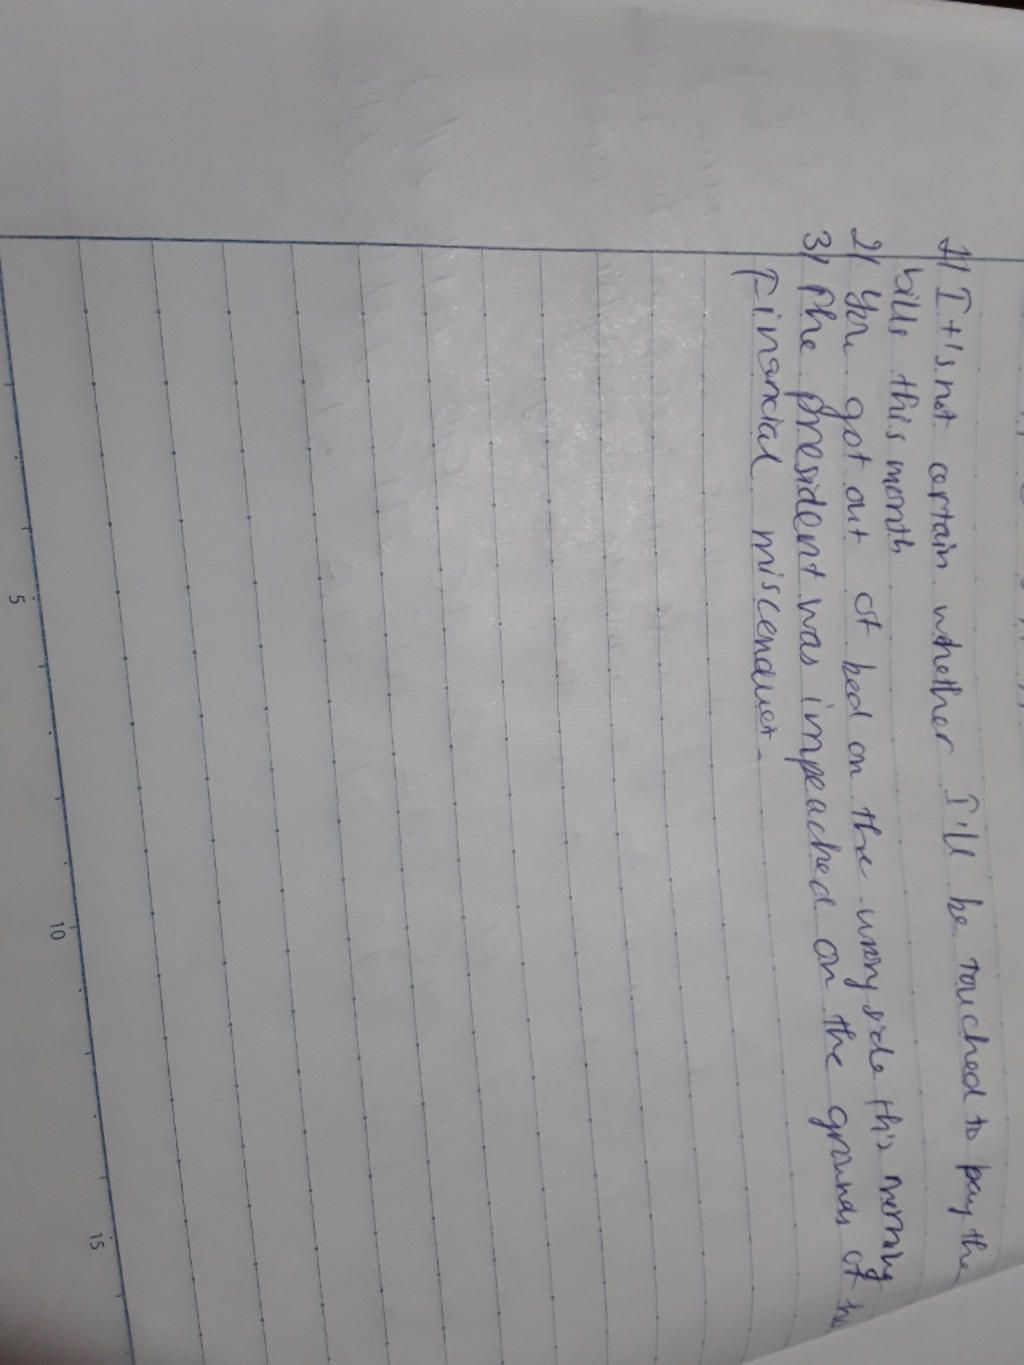 1) It's not certain whether I'll be touched to pay the
bills this month
2) You got out of bed on the wrong side this morning
3) The president was impeached on the grounds of
Financial misconduct.
5
10
15